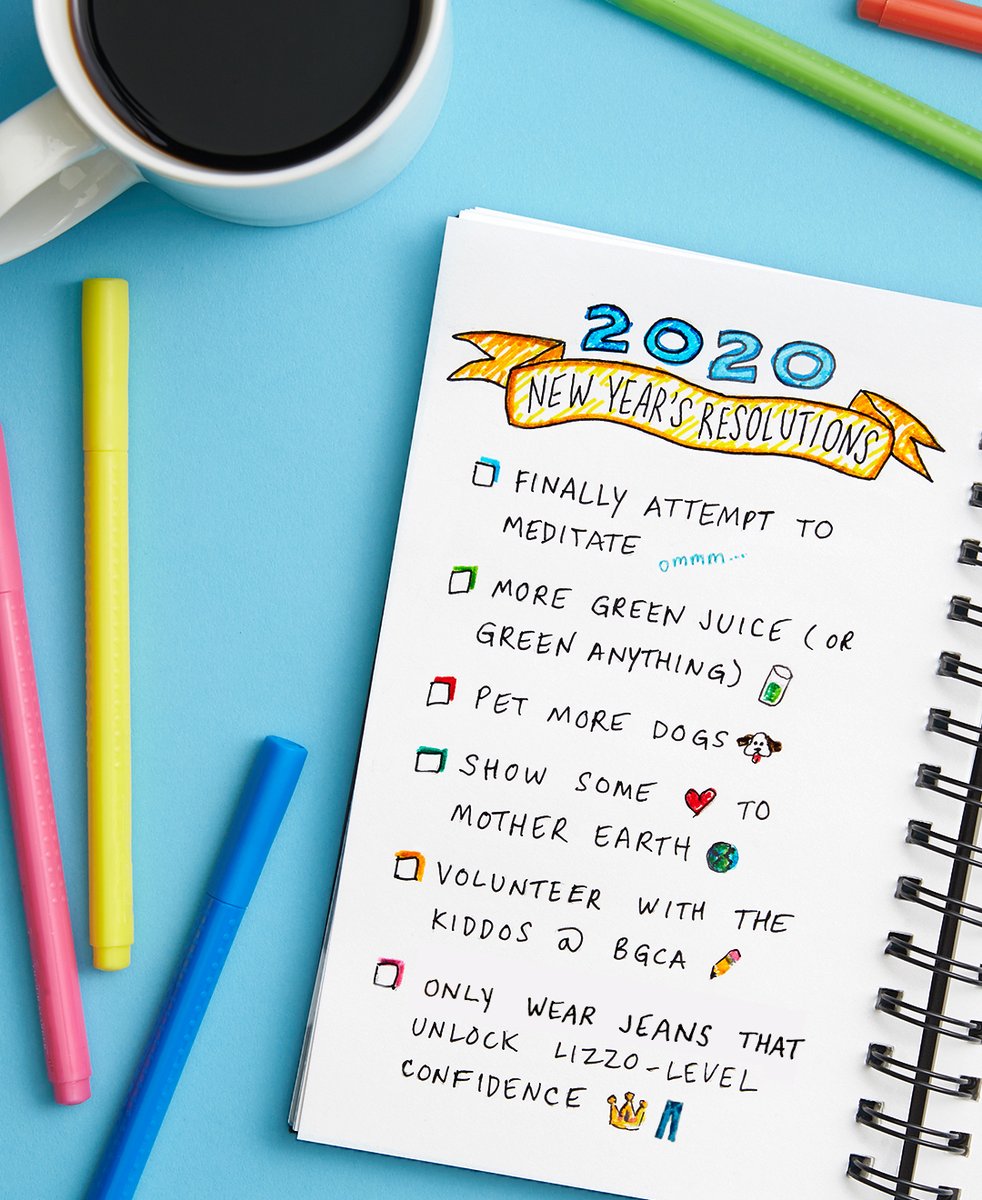 2020
NEW YEAR'S RESOLUTIONS
FINALLY ATTEMPT TO
MEDITATE ommm...
MORE GREEN JUICE (OR
GREEN ANYTHING)
PET MORE DOGS
SHOW SOME ❤️ TO
MOTHER EARTH
VOLUNTEER WITH THE
KIDDOS @ BGCA
ONLY WEAR JEANS THAT
UNLOCK LIZZO-LEVEL
CONFIDENCE